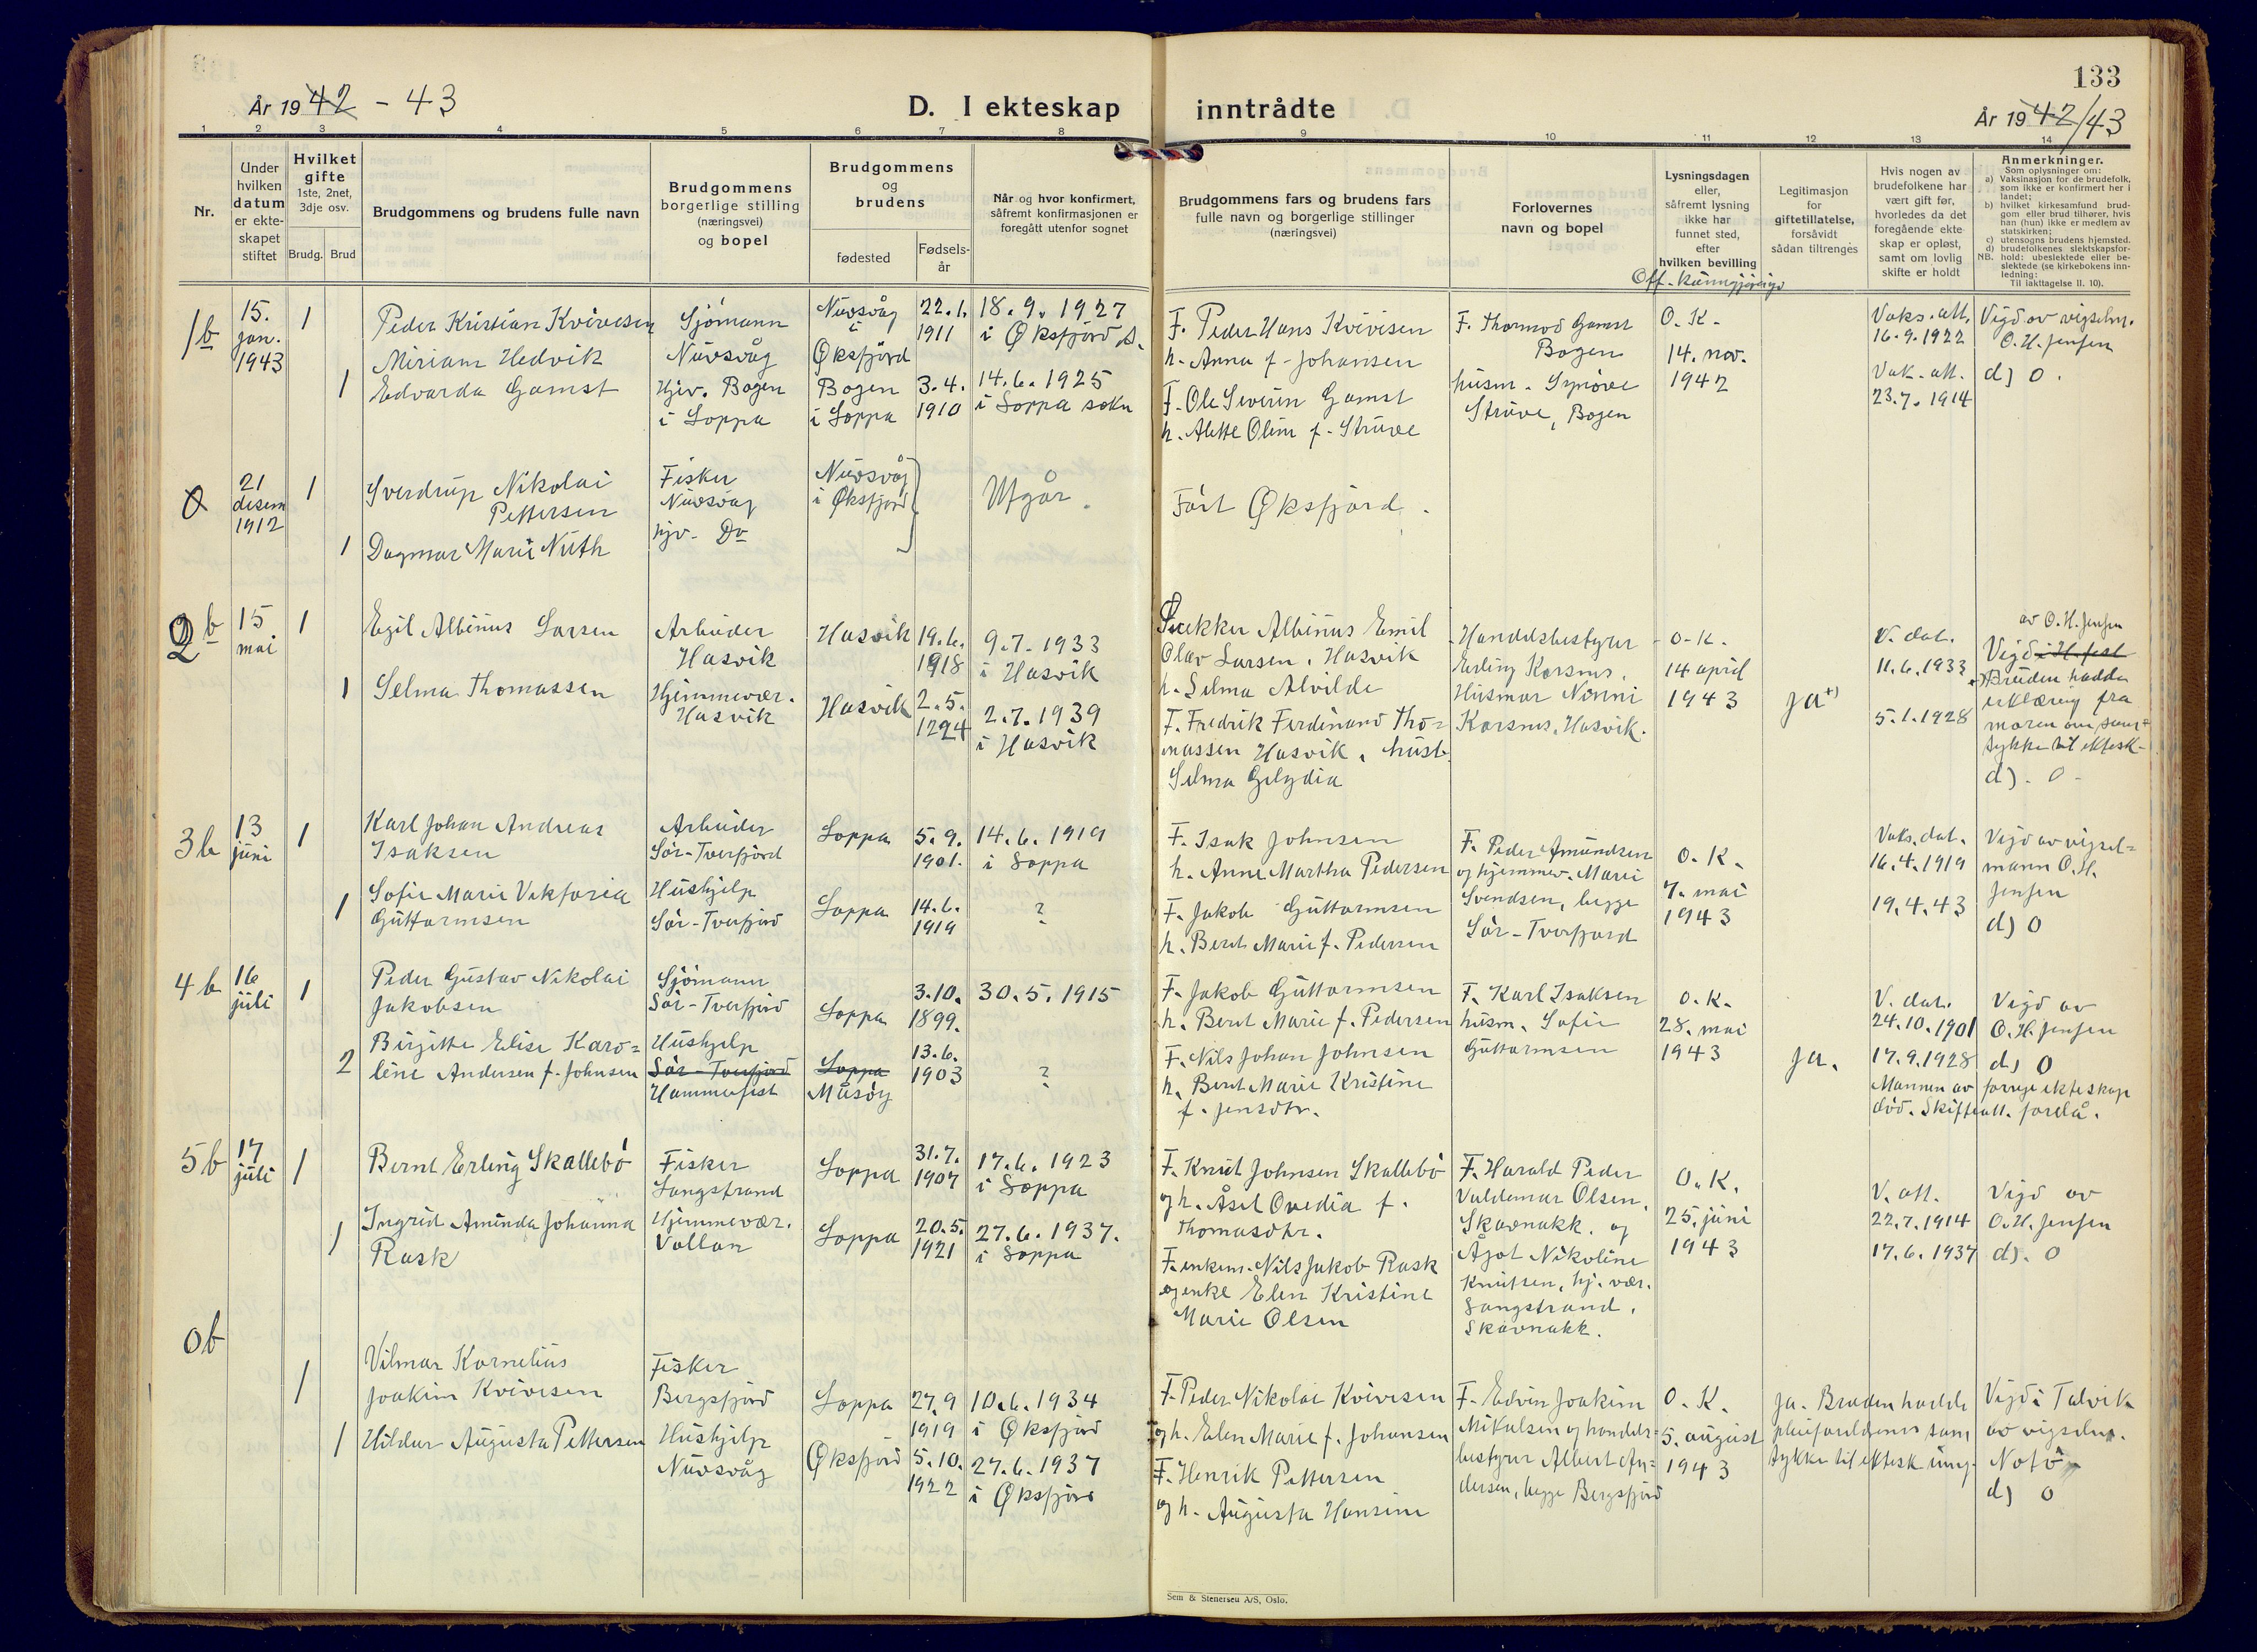 133
År 1942 - 43
D. I ekteskap inntrådte
År 1942/43
1 2 3 4 5 6 7 8 9 10 11 12 13 14
Nr.
Under
hvilken
datum
er ekte-
skapet
stiftet
Hvilket
gifte
1ste, 2net,
3dje osv.
Brudg. Brud
Brudgommens og brudens fulle navn
Brudgommens
borgerlige stilling
(næringsvei)
og bopel
Brudgommens
og
brudens
fødested
Fødsels-
år
Når og hvor konfirmert,
såfremt konfirmasjonen er
foregått utenfor sognet
Brudgommens fars og brudens fars
fulle navn og borgerlige stillinger
(næringsvei)
Forlovernes
navn og bopel
Lysningsdagen
eller,
såfremt lysning
ikke har
funnet sted,
efter
hvilken bevilling
Off. kunngjøring
Legitimasjon
for
giftetillatelse,
forsåvidt
sådan tiltrenges
Hvis nogen av
brudefolkene har
vært gift før,
hvorledes da det
foregående ekte-
skap er opløst,
samt om lovlig
skifte er holdt
Anmerkninger.
Som oplysninger om:
a) Vaksinasjon for de brudefolk,
som ikke er konfirmert her i
landet;
b) hvilket kirkesamfund brud-
gom eller brud tilhører, hvis
han (hun) ikke er medlem av
statskirken;
c) utensogns brudens hjemsted.
d) brudefolkenes slektskapsfor-
hold: ubeslektede eller be-
slektede (se kirkebokens inn-
ledning:
NB.
Til iakttagelse II. 10).
1b
15.
jan.
1943
1
Peder Kristian Kvivesen
Miriam Hedvik
1 Edvarda Gamst
Sjömann
Nuvsvåg
Hjv. Bogen
i Loppa
Nuvsvåg
i
Øksfjord
Bogen
i Loppa
22.1.
1911
3.4.
1910
18.9.1927
i Øksfjord s.
14.6.1925
i Loppa sokn
F. Peder Hans Kvivesen
h. Anna f. Johansen
F. Ole Severin Gamst
h. Alette Oline f. Struve
F. Thormod Gamst
Bogen
husm. Synöve
Struve, Bogen
O.K.
14. nov.
1942
Vaks. att.
16.9.1922
Vak. att.
23.7.1914
Vigd av vigselm.
O.H. Jensen
d) 0.
0
21
desem
1912
1
Sverdrup Nikolai
Pettersen
1 Dagmar Marie Nuth
Fisker
Nuvsvåg
hjv. Do
Nuvsvåg
i Øksfjord
Utgår.
Fört Øksfjord.
2b
15
mai
1
Egil Albinus Larsen
1 Selma Thomassen
Arbeider
Hasvik
Hjemmevær.
Hasvik
Hasvik
Hasvik
19.6.
1918
2.5.
1924
9.7.1933
i Hasvik
2.7.1939
i Hasvik
Snekker Albinus Emil
Olav Larsen, Hasvik
h. Selma Alvilde
F. Fredrik Ferdinand Tho=
massen Hasvik, hust.
Selma Gelydia
Handelsbestyrer
Erling Korsnes,
Husmor Nonni
Korsnes, Hasvik.
O.K.
14 april
1943
Ja +)
V. dat.
11.6.1933
5.1.1928
av O.H. Jensen
Vigd i H.fest
+) Bruden hadde
erklæring fra
moren om sam=
tykke til ektesk.
d). 0.
3b
13
juni
1
Karl Johan Andreas
Isaksen
1 Sofie Marie Viktoria
Guttormsen
Arbeider
Sör-Tverfjord
Hushjelp
Sör-Tverfjord
Loppa
Loppa
5.9.
1901.
14.6.
1919
14.6.1919
i Loppa
?
F. Isak Johnsen
h. Anne Martha Pedersen
F. Jakob Guttormsen
h. Berit Marie f. Pedersen
F. Peder Amundsen
og hjemmev. Marie
Svendsen, begge
Sör-Tverfjord
O.K.
7. mai
1943
Vaks. dat.
16.4.1919
19.4.43
Vigd av vigsel=
mann O.H.
Jensen
d) 0
4b
16
juli
1
Peder Gustav Nikolai
Jakobsen
2
Birgitte Elise Karo=
line Andersen f. Johnsen
Sjömann
Sör-Tverfjord
Hushjelp
Sör-Tverfjord
Hammerfest
Loppa
Loppa
Måsøy
3.10.
1899.
13.6.
1903
30.5.1915
?
F. Jakob Guttormsen
h. Berit Marie f. Pedersen
F. Nils Johan Johnsen
h. Berit Marie Kristine
f. Jensdtr.
F. Karl Isaksen
husm. Sofie
Guttormsen
O.K.
28. mai
1943
Ja.
V. dat.
24.10.1901
17.9.1928
Vigd av
O.H. Jensen
d) 0
Mannen av forrige ekteskap
död. Skifteatt. forelå.
5b
17
juli
1
Bernt Erling Skallebö
1
Ingrid Aminda Johanna
Rask
Fisker
Langstrand
Hjemmevær.
Vollan
Loppa
Loppa
31.7.
1907
20.5.
1921
17.6.1923
i Loppa
27.6.1937.
i Loppa
F. Knut Johnsen Skallebö
og h. Åsel Ovedia f.
Thomasdtr.
F. enkem. Nils Jakob Rask
og enke Elen Kristine
Marie Olsen
F. Harald Peder
Valdemar Olsen,
Skavnakk. og
Ågot Nikoline
Knutsen, hj. vær.
Langstrand,
Skavnakk.
O.K.
25. juni
1943
V. att.
22.7.1914
17.6.1937
Vigd av
O.H. Jensen
d). 0
0b
1
Vilmar Kornelius
Joakim Kvivesen
1 Hildur Augusta Pettersen
Fisker
Bergsfjord
Hushjelp
Nuvsvåg
Loppa
Øksfjord
27.9
1919
5.10.
1922
10.6.1934
i Øksfjord
27.6.1937
i Øksfjord
F. Peder Nikolai Kvivesen
og h. Elen Marie f. Johansen
F. Henrik Pettersen
og h. Augusta Hansine
F. Edvin Joakim
Mikalsen og handels-
bestyrer Albert An=
dersen, begge Bergsfjord
O.K.
5. august
1943
Ja. Bruden hadde
pleiforeldrenes sam
tykke til ektesk. inng.
Vigd i Talvik
av vigselm.
d) 0
Sem & Stenersen A/S, Oslo.